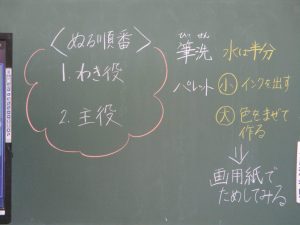 〈ぬる順番〉
1. わき役
2. 主役
ひっせん
筆洗 水は半分
パレット 小 インクを出す
大 色をまぜて
作る
↓
画用紙で
ためしてみる